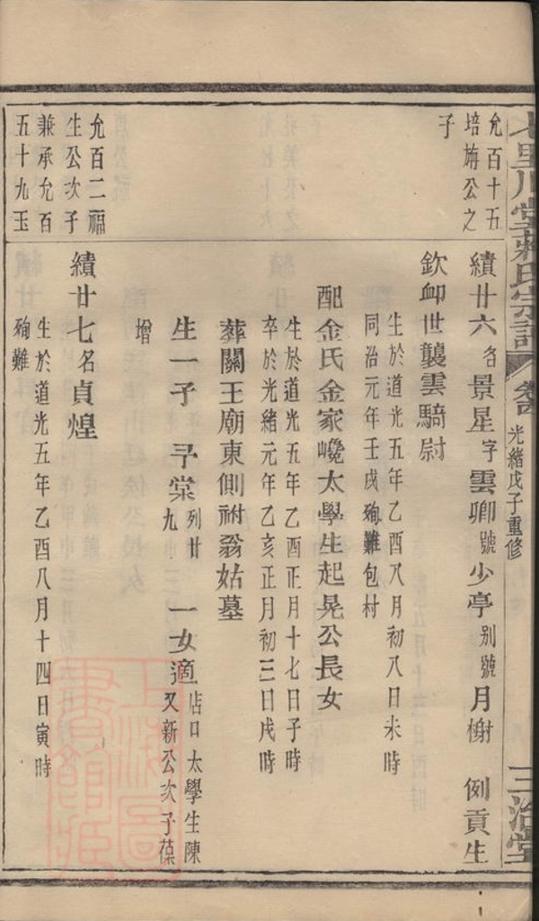 七里川堂蔣氏宗譜
光緒戊子重修
三治堂
允百十五
培旃公之
子
績廿六名景星字雲卿號少亭别號月榭 例貢生
欽卹世襲雲騎尉
生於道光五年乙酉八月初八日未時
同治元年壬戌殉難包村
配金氏金家巉太學生起晃公長女
生於道光五年乙酉正月十七日子時
卒於光緒元年乙亥正月初三日戌時
葬關王廟東側祔翁姑墓
生一子 子棠列廿九 一女適店口太學生陳又新公次子葆
增
允百二福
生公次子
兼承允百
五十九玉
績廿七名貞煌
生於道光五年乙酉八月十四日寅時
殉難